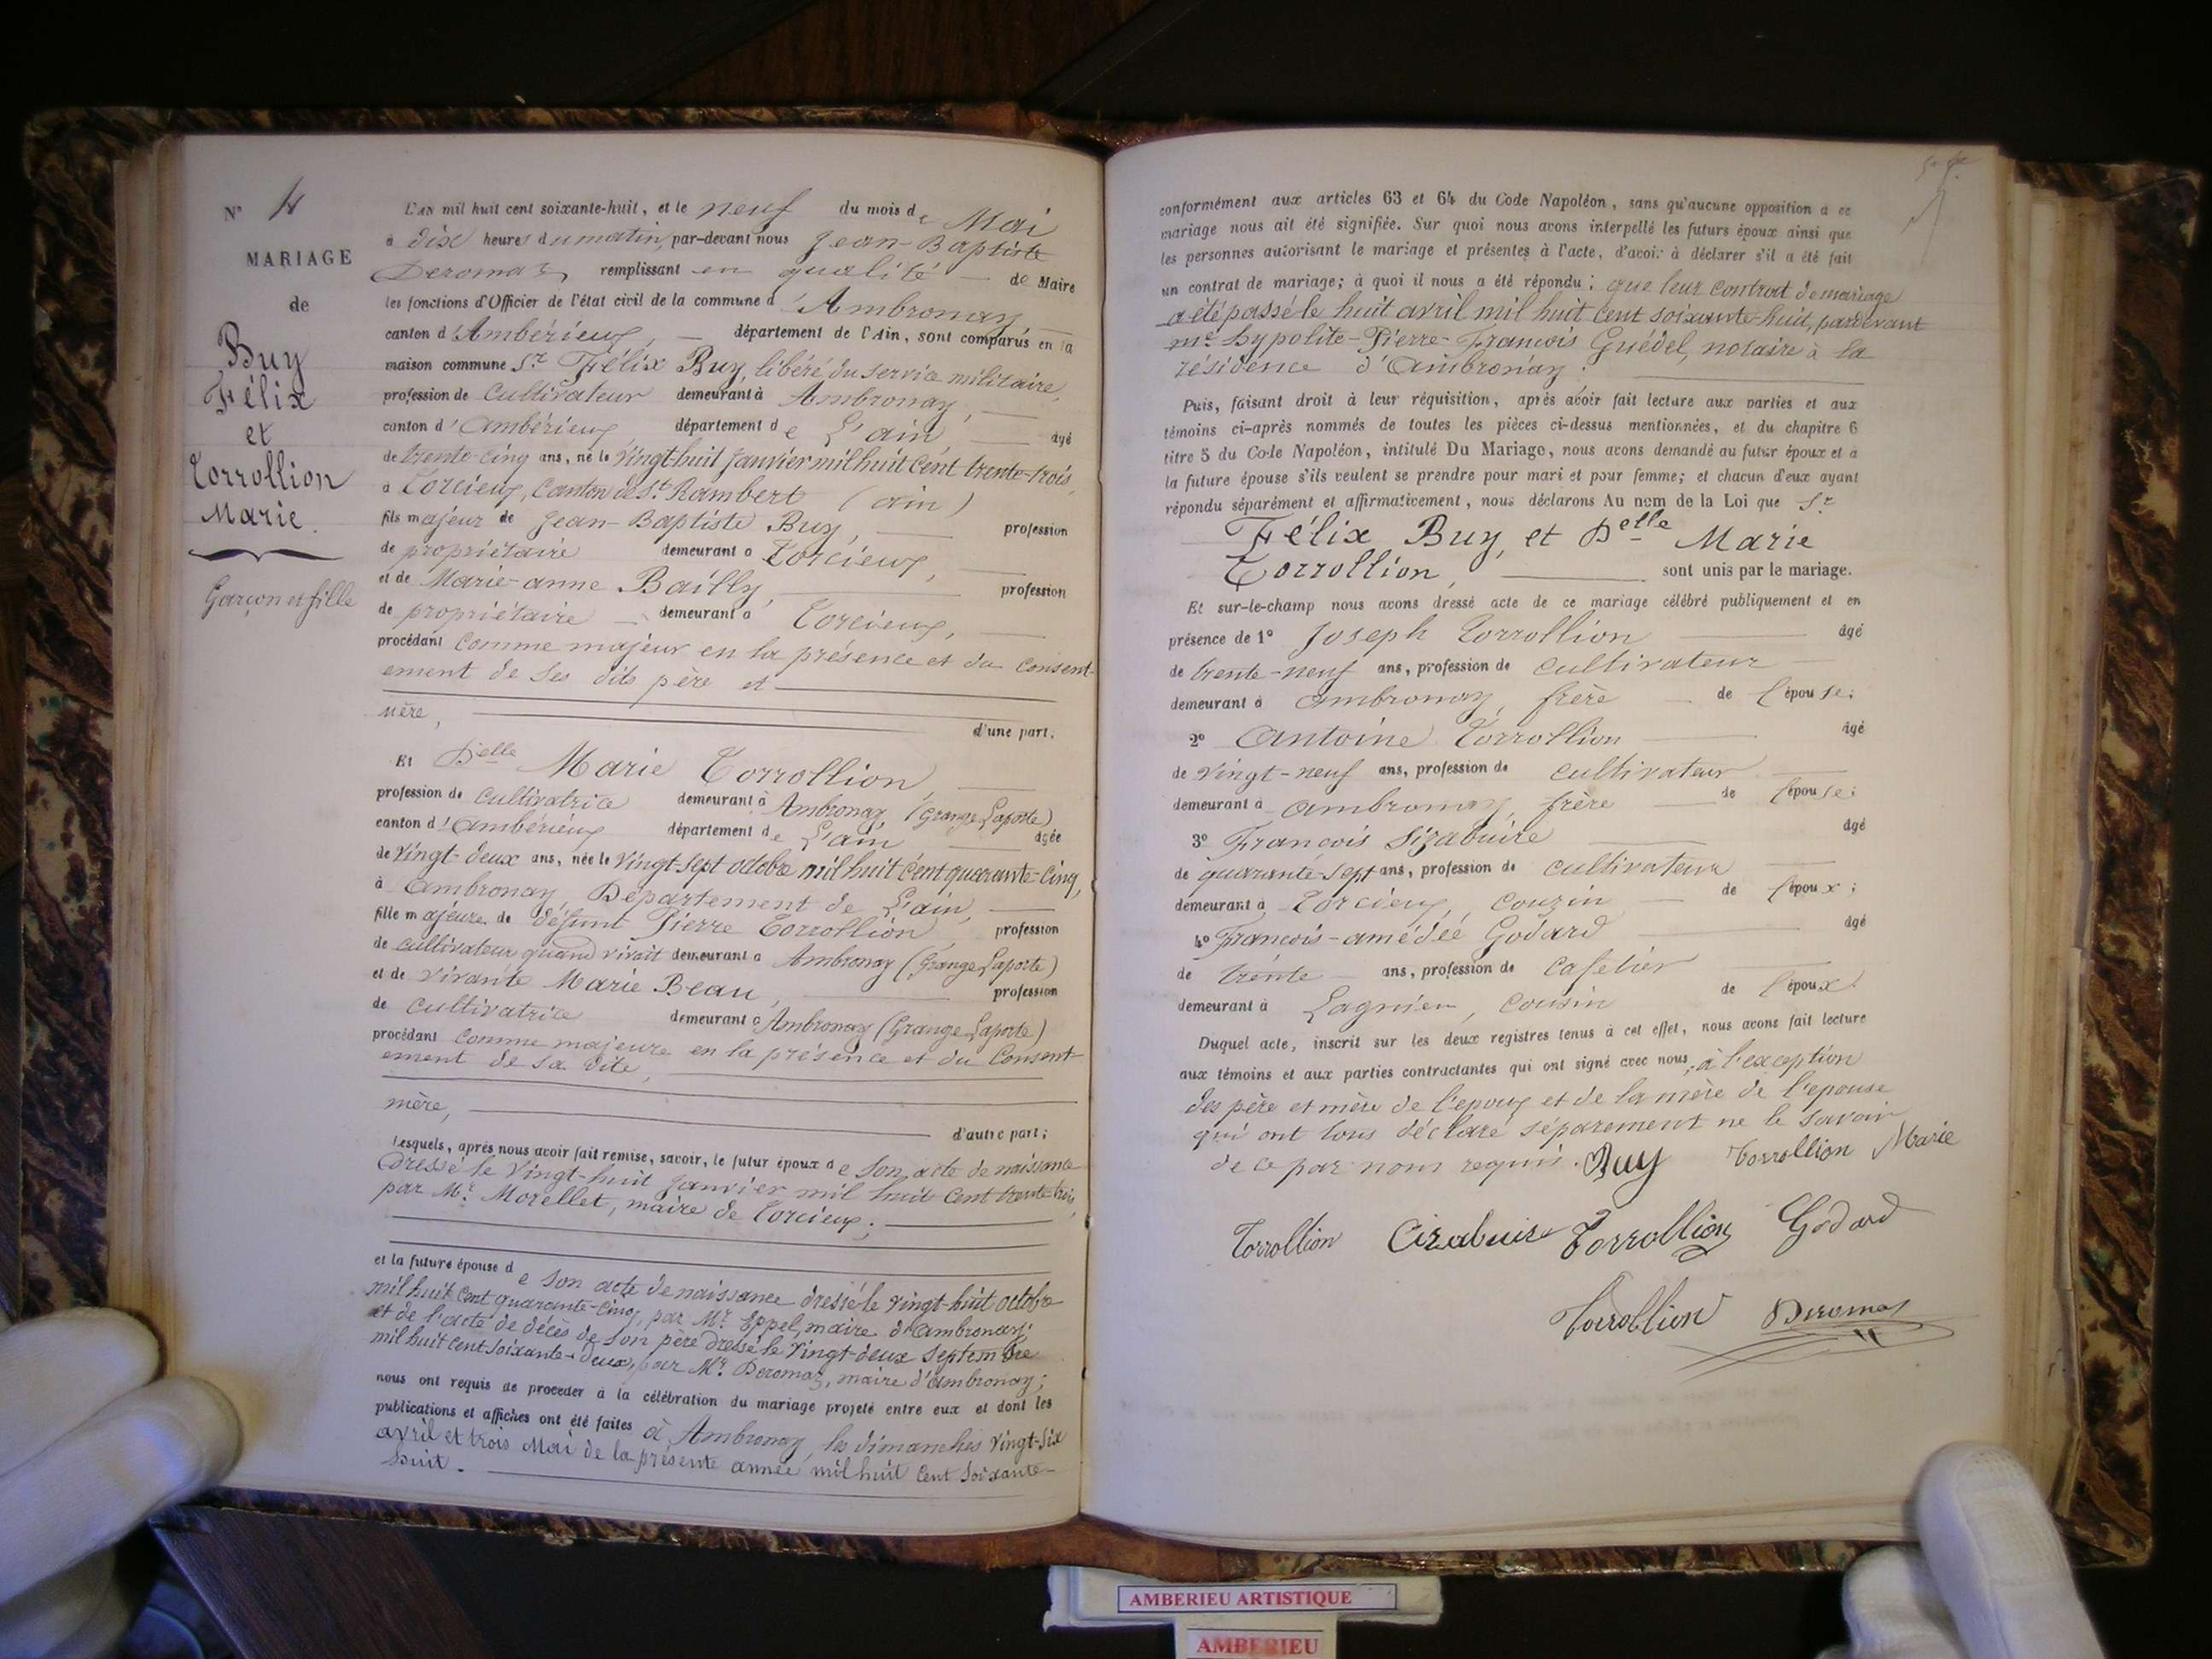 N° 4
MARIAGE
de
Buy
Félix
et
Torrollion
Marie.
Garçon et fille
L'AN mil huit cent soixante-huit, et le neuf du mois de Mai
à dix heures du matin, par-devant nous Jean-Baptiste
Deromaz, remplissant en qualité de Maire
les fonctions d'Officier de l'état civil de la commune d'Ambronay
canton d'Ambérieux, département de l'Ain, sont comparus en la
maison commune Sr Félix Buy, libéré du service militaire,
profession de cultivateur demeurant à Ambronay,
canton d'Ambérieux département de L'ain âgé
de trente-cinq ans, né le vingt-huit janvier mil huit cent trente-trois,
à Torcieux, Canton de St Rambert (ain)
fils majeur de Jean-Baptiste Buy, profession
de propriétaire demeurant à Torcieux,
et de Marie-anne Bailly, profession
de propriétaire demeurant à Torcieux,
procédant comme majeur en la présence et du consent-
ement de ses dits père et
mère,
d'une part.
Et Delle Marie Torrollion,
profession de cultivatrice demeurant à Ambronay (Grange Laporte)
canton d'Ambérieux département de L'ain âgée
de vingt-deux ans, née le vingt-sept octobre mil huit cent quarante-cinq,
à Ambronay, Département de L'ain,
fille majeure de défunt Pierre Torrollion, profession
de cultivateur quand vivait demeurant à Ambronay (Grange Laporte)
et de vivante Marie Beau, profession
de cultivatrice demeurant à Ambronay (Grange Laporte)
procédant comme majeure en la présence et du Consent-
ement de sa dite,
mère,
d'autre part;
Lesquels, après nous avoir fait remise, savoir, le futur époux de son acte de naissance
dressé le vingt-huit janvier mil huit cent trente-trois,
par Mr Morellet, maire de Torcieux;
et la future épouse de son acte de naissance dressé le vingt-huit octobre
mil huit cent quarante-cinq, par Mr Eppel, maire d'ambronay;
et de l'acte de décès de son père dressé le vingt-deux septembre
mil huit cent soixante-deux, par Mr Deromaz, maire d'ambronay;
nous ont requis de procéder à la célébration du mariage projeté entre eux et dont les
publications et affiches ont été faites à Ambronay, les dimanches vingt-six
avril et trois Mai de la présente année mil huit cent soixante-
huit.
conformément aux articles 63 et 64 du Code Napoléon, sans qu'aucune opposition à ce
mariage nous ait été signifiée. Sur quoi nous avons interpellé les futurs époux ainsi que
les personnes autorisant le mariage et présentes à l'acte, d'avoir à déclarer s'il a été fait
un contrat de mariage; à quoi il nous a été répondu: que leur contrat de mariage
a été passé le huit avril mil huit cent soixante-huit, pardevant
me hypolite-Pierre-François Guédel, notaire à la
résidence d'Ambronay.
Puis, faisant droit à leur réquisition, après avoir fait lecture aux parties et aux
témoins ci-après nommés de toutes les pièces ci-dessus mentionnées, et du chapitre 6
titre 5 du Code Napoléon, intitulé Du Mariage, nous avons demandé au futur époux et à
la future épouse s'ils veulent se prendre pour mari et pour femme; et chacun d'eux ayant
répondu séparément et affirmativement, nous déclarons Au nom de la Loi que Sr
Félix Buy, et Delle Marie
Torrollion, sont unis par le mariage.
Et sur-le-champ nous avons dressé acte de ce mariage célébré publiquement et en
présence de 1° Joseph Torrollion âgé
de trente-neuf ans, profession de cultivateur
demeurant à ambronay, frère de l'épouse;
2° Antoine Torrollion âgé
de vingt-neuf ans, profession de cultivateur
demeurant à ambronay, frère de l'épouse;
3° François Sizabuire âgé
de quarante-sept ans, profession de cultivateur
demeurant à Torcieux, couzin de l'époux;
4° François-amédée Godard âgé
de trente ans, profession de cafetier
demeurant à Lagnieu, cousin de l'époux.
Duquel acte, inscrit sur les deux registres tenus à cet effet, nous avons fait lecture
aux témoins et aux parties contractantes qui ont signé avec nous, à l'exception
des père et mère de l'epoux et de la mère de l'epouse
qui ont tous déclaré séparement ne le savoir
de ce par nous requis. Buy Torrollion Marie
Torrollion Cizabuire Torrollion Godard
Torrollion Deromaz
AMBERIEU ARTISTIQUE
AMBERIEU